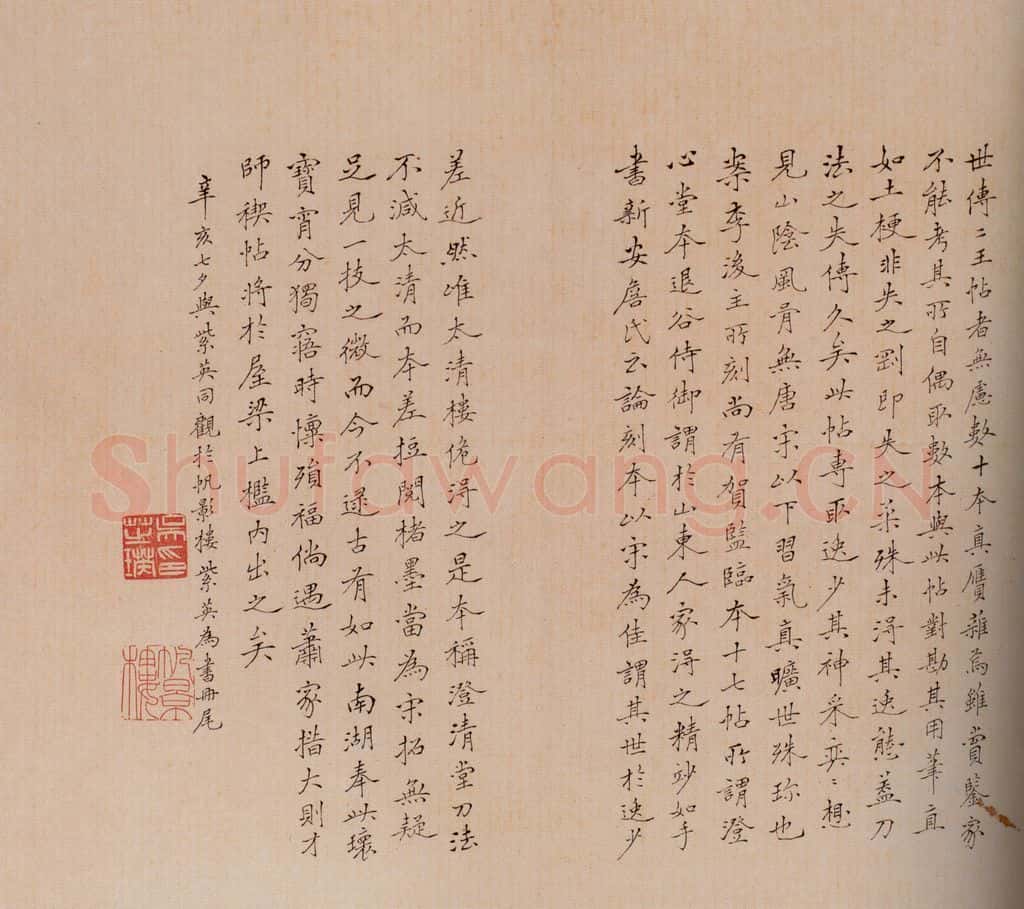 世傳二王帖者無慮數十本真贋雜焉雖賞鑒家
不能考其所自偶取數本與此帖對勘其用筆直
如土梗非失之剛即失之柔殊未得其逸態蓋刀
法之失傳久矣此帖專取逸少其神采奕〻想
見山陰風骨無唐宋以下習氣真曠世殊珎也
案李後主所刻尚有賀監臨本十七帖所謂澄
心堂本退谷侍御謂於山東人家得之精竗如手
書新安詹氏云論刻本以宋為佳謂其世於逸少
差近然唯太清樓傀得之是本稱澄清堂刀法
不減太清而本差拒閱楮墨當為宋拓無疑
足見一技之微而今不逮古有如此南湖奉此瓌
寶宵分獨寤時懍殞福倘遇蕭家措大則才
師禊帖將於屋梁上檻內出之矣
辛亥七夕與紫英同觀於帆影樓紫英為書冊尾
吳芝瑛印
帆影樓
Shufawang.CN